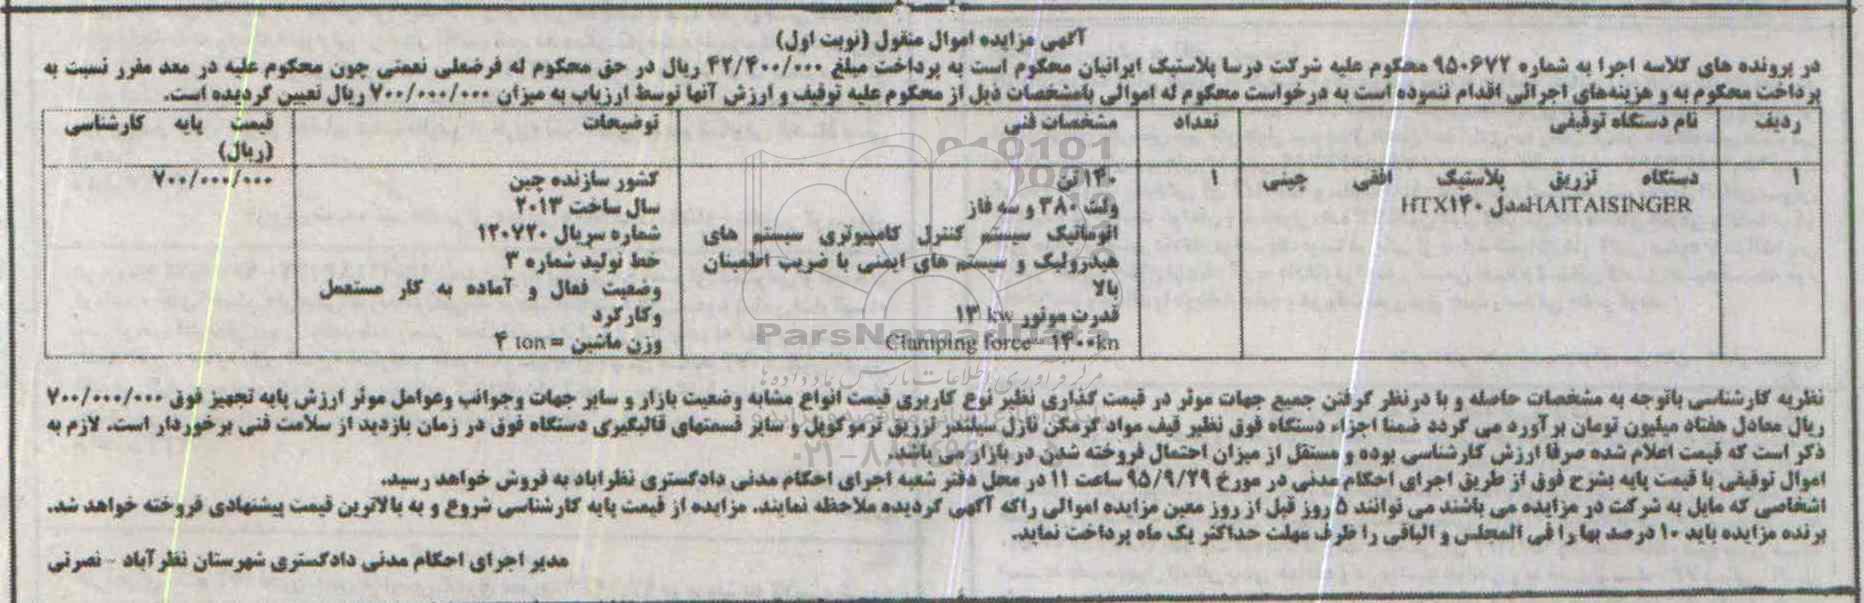 آگهی مزایده اموال منقول (نوبت اول)
در پرونده های کلاسه اجرا به شماره ۹۵۰۶۷۲ محکوم علیه شرکت درسا پلاستیک ایرانیان محکوم است به پرداخت مبلغ ۴۲/۴۰۰/۰۰۰ ریال در حق محکوم له فرضعلی نعمتی چون محکوم علیه در معد مقرر نسبت به
پرداخت محکوم به و هزینه‌های اجرائی اقدام ننموده است به درخواست محکوم له اموالی بامشخصات ذیل از محکوم علیه توقیف و ارزش آنها توسط ارزیاب به میزان ۷۰۰/۰۰۰/۰۰۰ ریال تعیین گردیده است.
ردیف نام دستگاه توقیفی تعداد مشخصات فنی توضیحات قیمت پایه کارشناسی
(ریال)
۱ دستگاه تزریق پلاستیک افقی چینی ۱ ۱۴۰ تن کشور سازنده چین ۷۰۰/۰۰۰/۰۰۰
HAITAISINGER مدل HTX۱۴۰ ولت ۳۸۰ و سه فاز سال ساخت ۲۰۱۳
اتوماتیک سیستم کنترل کامپیوتری سیستم های شماره سریال ۱۲۰۷۲۰
هیدرولیک و سیستم های ایمنی با ضریب اطمینان خط تولید شماره ۳
بالا وضعیت فعال و آماده به کار مستعمل
قدرت موتور ۱۳ kw وکارکرد
Clamping force ۱۴۰۰kn وزن ماشین = ۴ ton
010101
ParsNamadData
مرکز فرآوری اطلاعات پارس نماد داده ها
نظریه کارشناسی باتوجه به مشخصات حاصله و با درنظر گرفتن جمیع جهات موثر در قیمت گذاری نظیر نوع کاربری قیمت انواع مشابه وضعیت بازار و سایر جهات وجوانب وعوامل موثر ارزش پایه تجهیز فوق ۷۰۰/۰۰۰/۰۰۰
ریال معادل هفتاد میلیون تومان برآورد می گردد ضمنا اجزاء دستگاه فوق نظیر قیف مواد گرمکن نازل سیلندر تزریق ترموکوپل و سایر قسمتهای قالبگیری دستگاه فوق در زمان بازدید از سلامت فنی برخوردار است. لازم به
ذکر است که قیمت اعلام شده صرفا ارزش کارشناسی بوده و مستقل از میزان احتمال فروخته شدن در بازار می باشد.
اموال توقیفی با قیمت پایه بشرح فوق از طریق اجرای احکام مدنی در مورخ ۹۵/۹/۲۹ ساعت ۱۱ در محل دفتر شعبه اجرای احکام مدنی دادگستری نظراباد به فروش خواهد رسید.
اشخاصی که مایل به شرکت در مزایده می باشند می توانند ۵ روز قبل از روز معین مزایده اموالی راکه آگهی گردیده ملاحظه نمایند. مزایده از قیمت پایه کارشناسی شروع و به بالاترین قیمت پیشنهادی فروخته خواهد شد.
برنده مزایده باید ۱۰ درصد بها را فی المجلس و الباقی را ظرف مهلت حداکثر یک ماه پرداخت نماید.
مدیر اجرای احکام مدنی دادگستری شهرستان نظرآباد - نصرتی